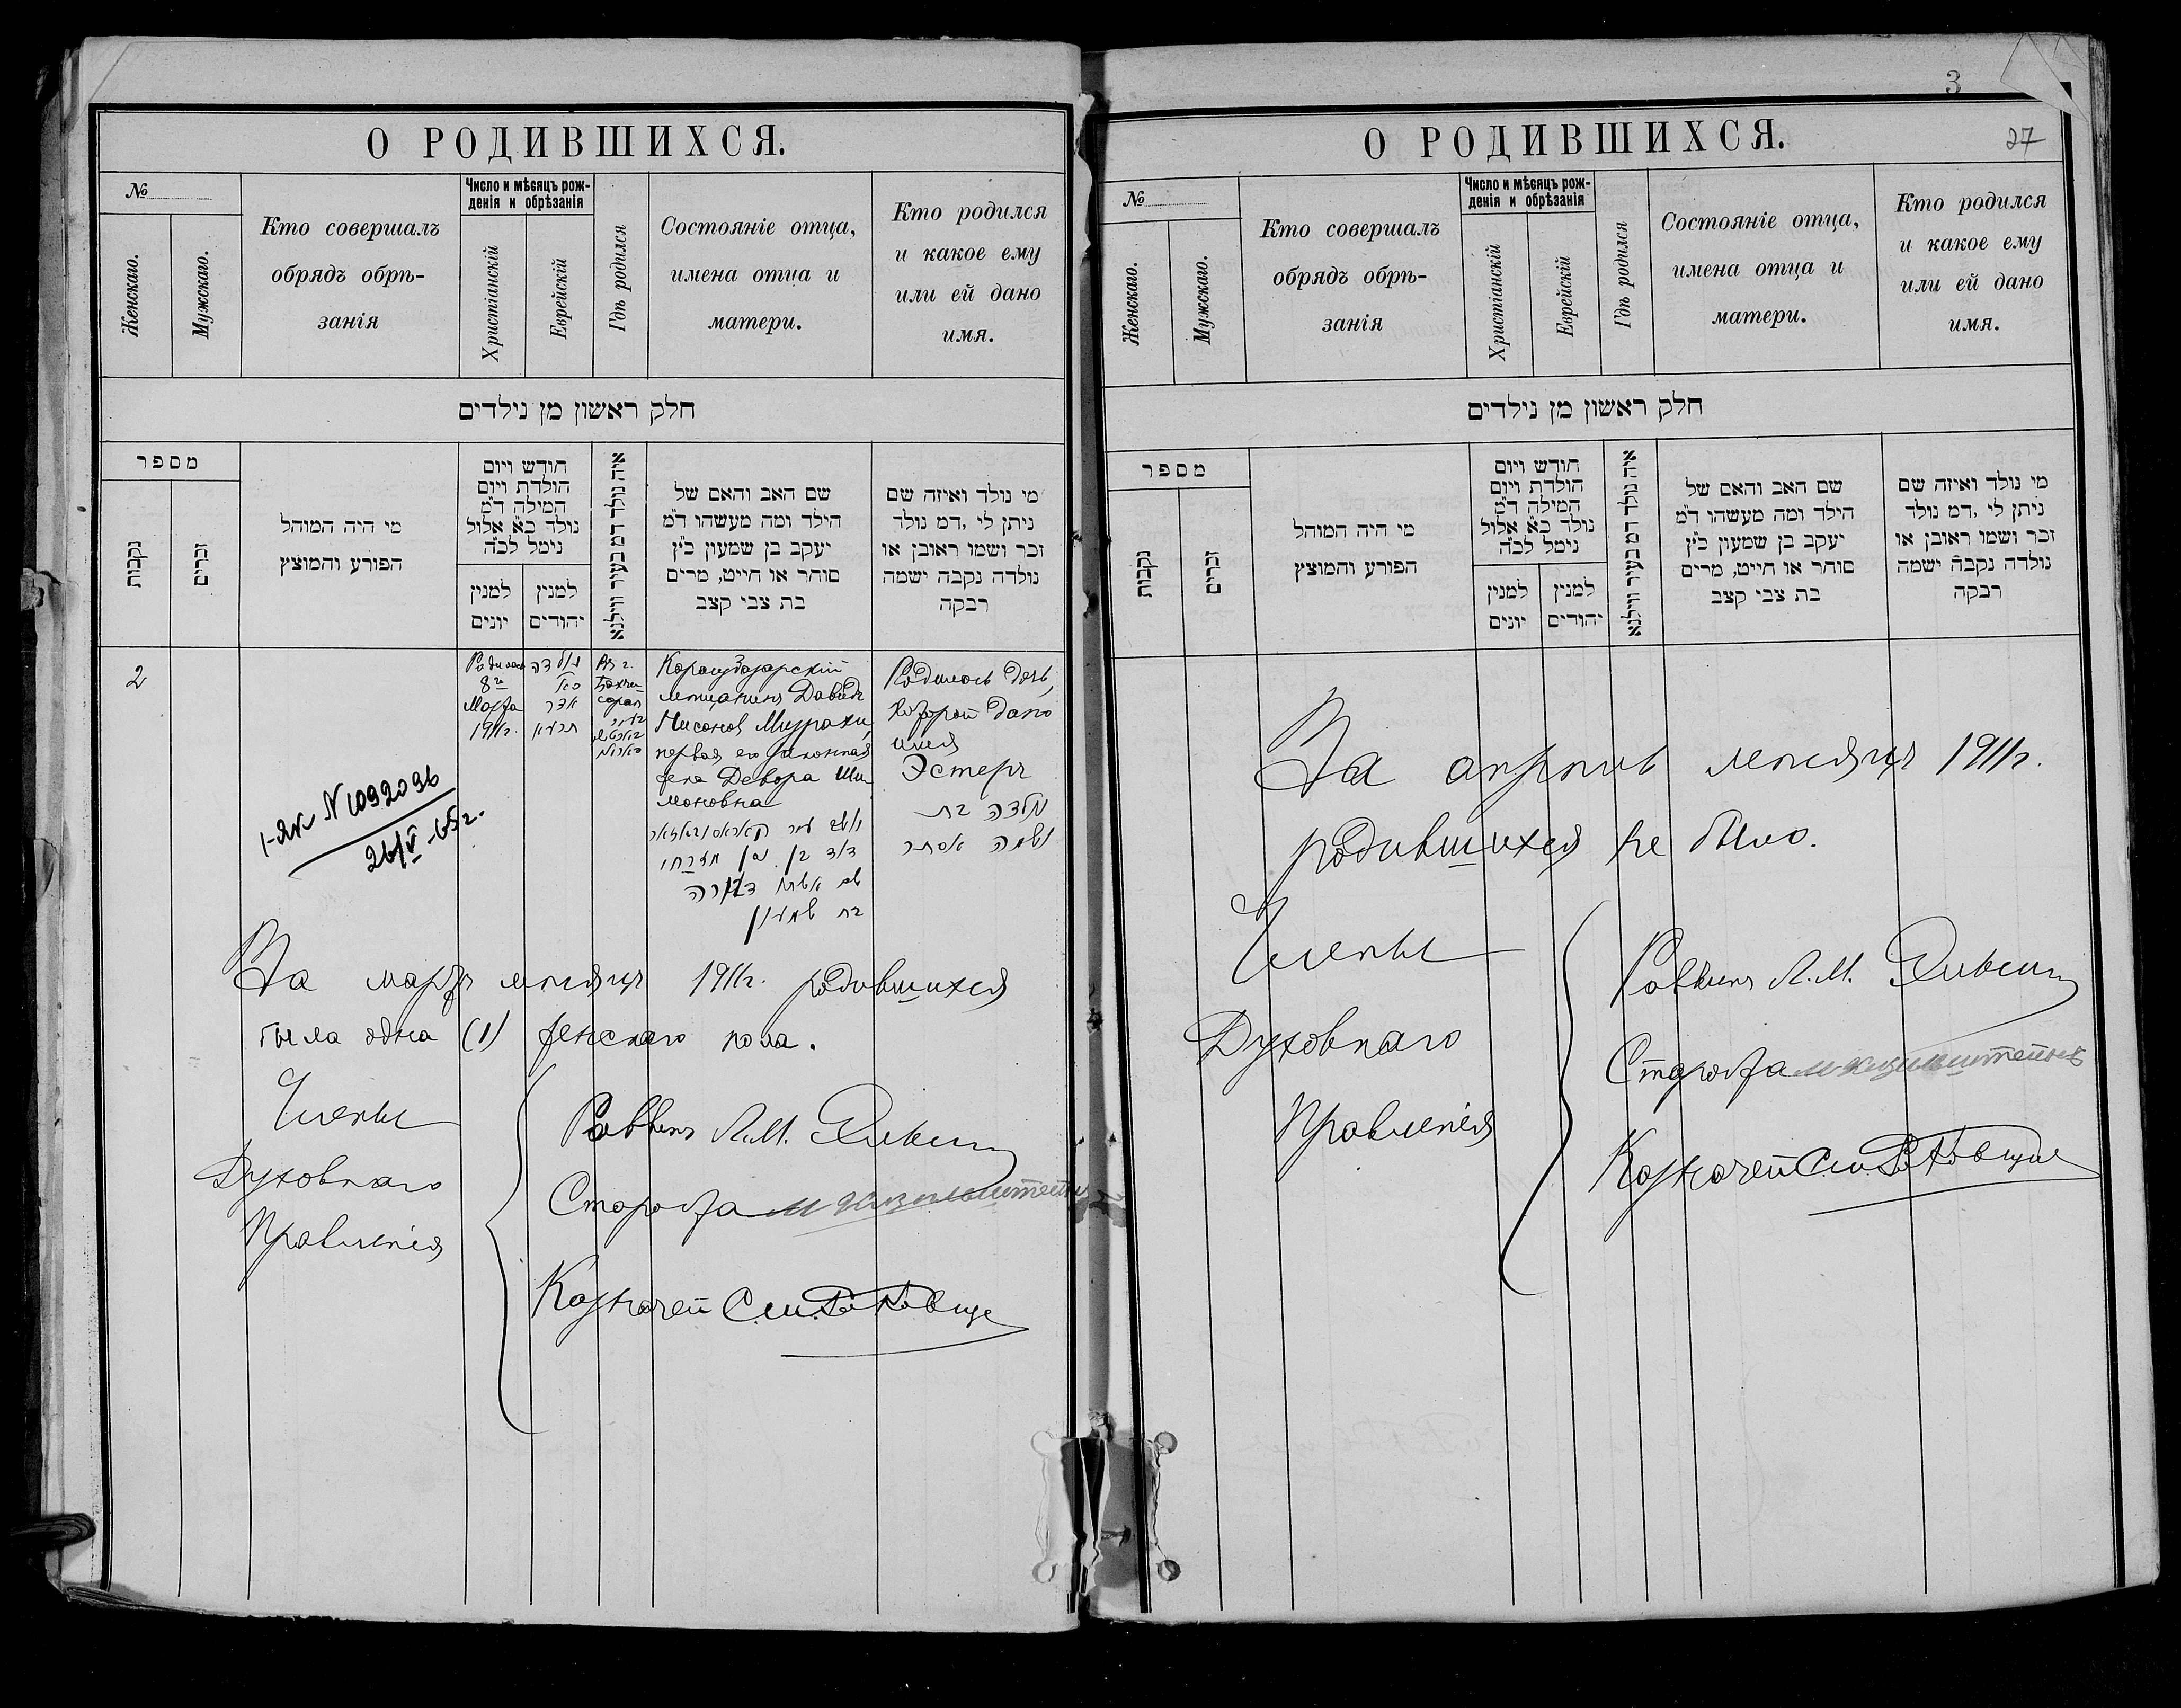 О РОДИВШИХСЯ.
№
Женскаго.
Мужскаго.
Кто совершалъ
обрядъ обрѣ-
занія
Число и мѣсяцъ рож-
денія и обрѣзанія
Христіанскій
Еврейскій
Гдѣ родился
Состояніе отца,
имена отца и
матери.
Кто родился
и какое ему
или ей дано
имя.
חלק ראשון מן נילדים
מספר
נקבות
זכרים
מי היה המוהל
הפורע והמוצץ
חודש ויום
הולדת ויום
המילה ד״מ
נולד כ״א אלול
נימל לכ״ה
למנין
יונים
למנין
יהודים
איה נולד דמ בעיר ווילנא
שם האב והאם של
הילד ומה מעשהו ד״מ
יעקב בן שמעון כ״ץ
סוחר או חייט, מרים
בת צבי קצב
מי נולד ואיזה שם
ניתן לי ,דמ נולד
זכר ושמו ראובן או
נולדה נקבה ישמה
רבקה
2
Родилась
8го
Марта
1911г.
נולדה
כא׳
אדר
תרעא
Въ г.
Бахчи-
сараѣ
Карасубазарскій
мѣщанинъ Давидъ
Нисановъ Мизрахи,
первая его законная
жена Девора Ши
моновна
דוד בן נסן מזרחי
שם אשתו דבורה
בת שמעון
Родилась дочь,
которой дано
имя
Эстеръ
נולדה בת
ושמה אסתר
I-ЯК №1092096
26/V-65г.
За мартъ мѣсяцъ 1911г. родившихся
была одна (1) женскаго пола.
Члены
Духовнаго
Правленія
Раввинъ Л.М.
Староста
Казначей С.
3
О РОДИВШИХСЯ.
27
№
Женскаго.
Мужскаго.
Кто совершалъ
обрядъ обрѣ-
занія
Число и мѣсяцъ рож-
денія и обрѣзанія
Христіанскій
Еврейскій
Гдѣ родился
Состояніе отца,
имена отца и
матери.
Кто родился
и какое ему
или ей дано
имя.
חלק ראשון מן נילדים
מספר
נקבות
זכרים
מי היה המוהל
הפורע והמוצץ
חודש ויום
הולדת ויום
המילה ד״מ
נולד כ״א אלול
נימל לכ״ה
למנין
יונים
למנין
יהודים
איה נולד דמ בעיר ווילנא
שם האב והאם של
הילד ומה מעשהו ד״מ
יעקב בן שמעון כ״ץ
סוחר או חייט, מרים
בת צבי קצב
מי נולד ואיזה שם
ניתן לי ,דמ נולד
זכר ושמו ראובן או
נולדה נקבה ישמה
רבקה
За апрѣль мѣсяцъ 1911г.
родившихся не было.
Члены
Духовнаго
Правленія
Раввинъ Л.М.
Староста
Казначей С.